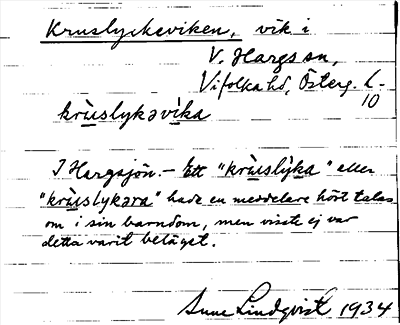 Kruslyckeviken, vik i
V. Hargs sn,
Vifolka hd, Österg. L-
10
krùslykəvìka
I Hargsjön. – Ett "krùslỳka" eller
"krùslykəra" hade en meddelare hört talas
om i sin barndom, men visste ej var
detta varit beläget.
Sune Lindqvist 1934